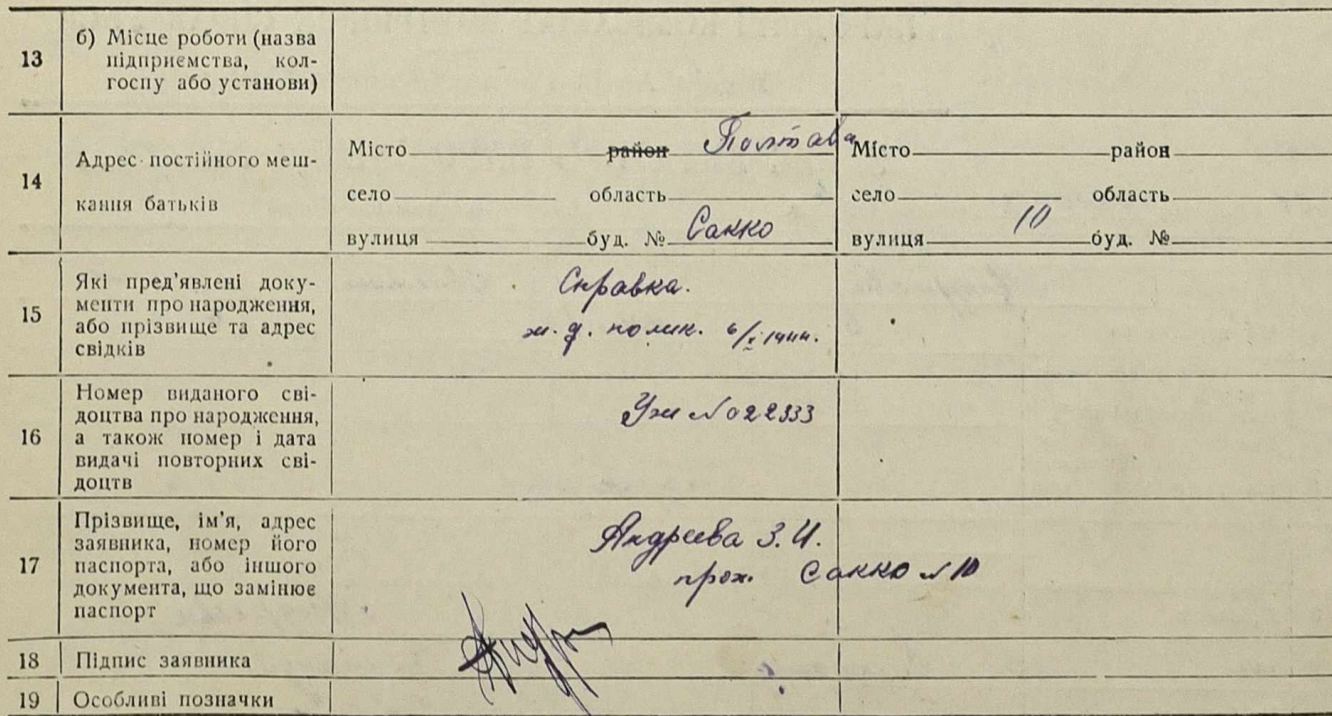 13
б) Місце роботи (назва
підприємства, кол-
госпу або установи)
14
Адрес постійного меш-
кання батьків
Місто район Полтава
село область
вулиця буд. № Сакко
Місто район
село область
вулиця 10 буд. №
15
Які пред'явлені доку-
менти про народження,
або прізвище та адрес
свідків
Справка.
ж. д. полик. 6/X 1944.
16
Номер виданого сві-
доцтва про народження,
а також номер і дата
видачі повторних сві-
доцтв
Уж №022333
17
Прізвище, ім'я, адрес
заявника, номер його
паспорта, або іншого
документа, що замінює
паспорт
Андреева З. И.
прож. Сакко №10
18
Підпис заявника
19
Особливі позначки